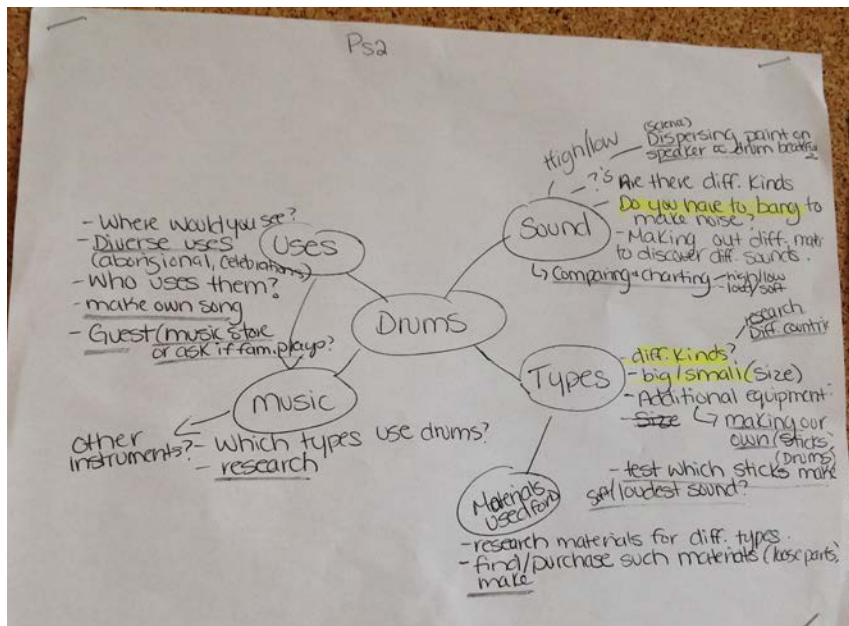 Ps2
Drums
Uses
- Where would you see?
- Diverse uses
(aborigional, celebrations)
- Who uses them?
- make own song
- Guest (music store
or ask if fam. plays?
music
other
instruments?
- which types use drums?
- research
Sound
High/low
(science)
Dispersing paint on
speaker drum beating
?'s Are there diff. kinds
Do you have to bang to
make noise?
- Making out diff. mat
to discover diff. sounds.
↳ Comparing + charting - high/low
- loud/soft
Types
research
Diff. countri
- diff. kinds?
- big/small (size)
- Additional equipment.
Size
↳ making our
own (sticks)
(Drums)
- test which sticks make
soft/loudest sound?
Materials
used ford
- research materials for diff. types.
- find/purchase such materials (loose parts,
make